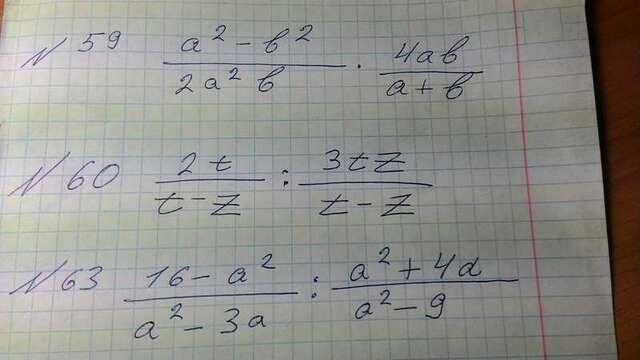 № 59 (a² - b²)/(2a²b) · 4ab/(a + b)
№ 60 2t/(t - z) : 3tz/(t - z)
№ 63 (16 - a²)/(a² - 3a) : (a² + 4a)/(a² - 9)